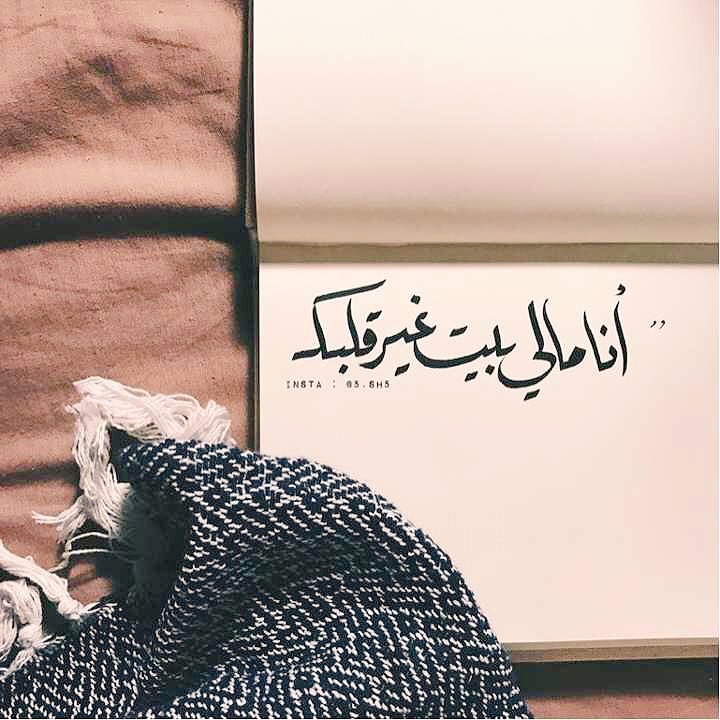 " أنا مالي بيت غير قلبك
INSTA : @5.SH5